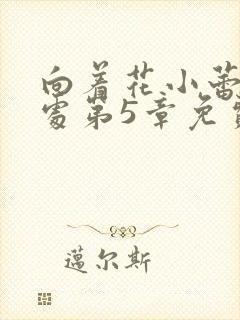 向着花小蕾
处第5章免费
邁尔斯